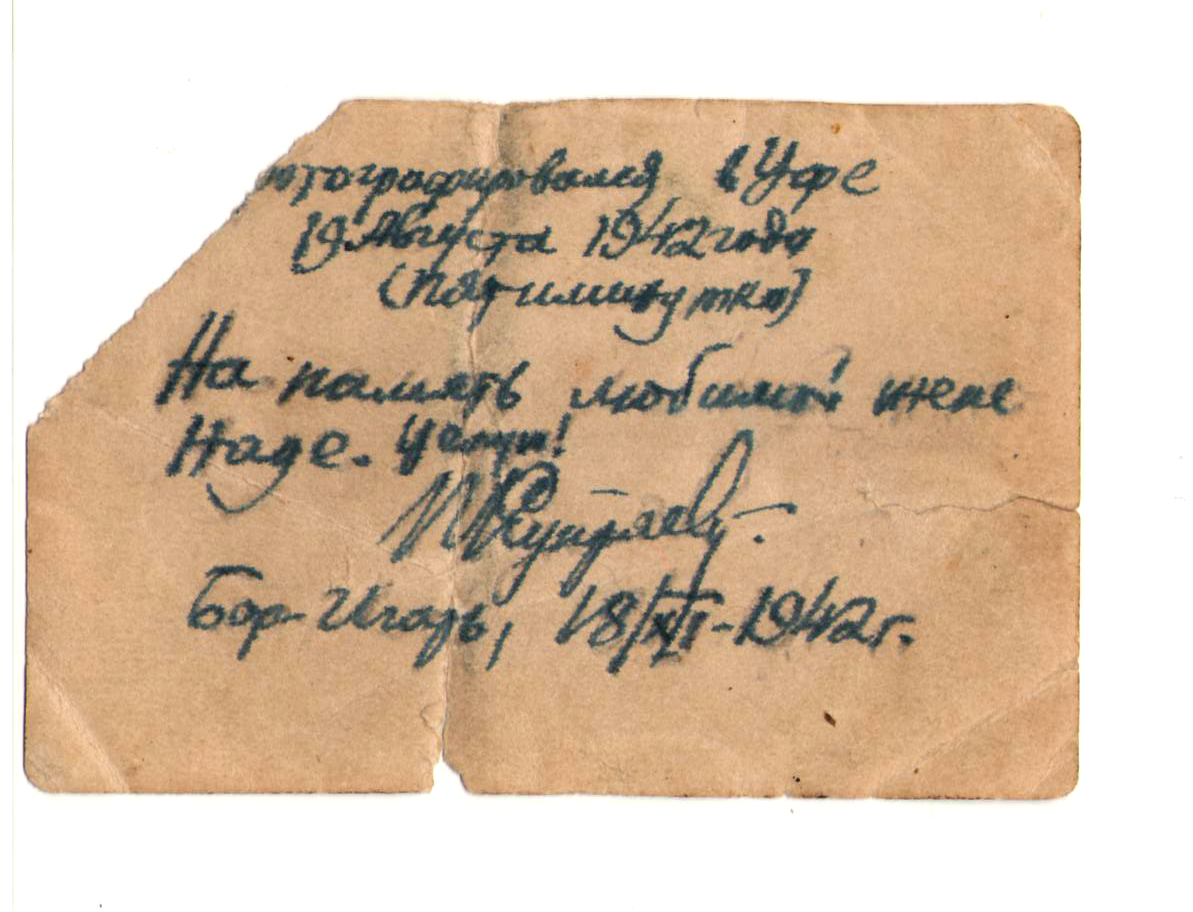 отографировался в Уфе
19 Августа 1942 года
(пятиминутка)
На память любимой жене
Наде. Целую!
Бор-Игарь, 18/XI-1942 г.